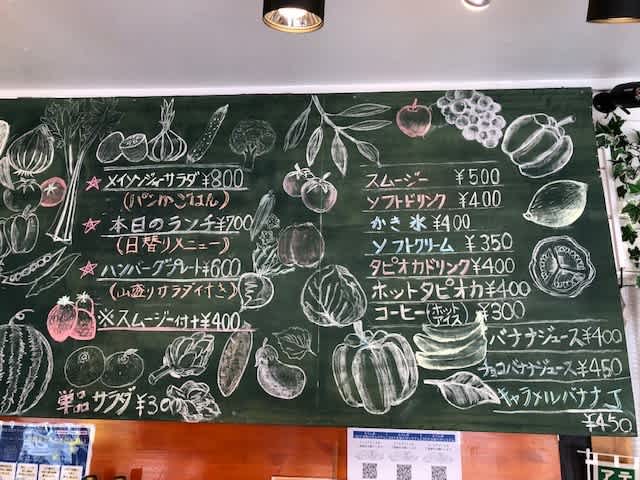 メイソンジャーサラダ ¥800
(パンorごはん)
本日のランチ ¥700
(日替りメニュー)
ハンバーグプレート ¥600
(山盛りサラダ付き)
※スムージー付+¥400
単品サラダ ¥300
スムージー ¥500
ソフトドリンク ¥400
かき氷 ¥400
ソフトクリーム ¥350
タピオカドリンク ¥400
ホットタピオカ ¥400
コーヒー(ホット アイス) ¥300
バナナジュース ¥400
チョコバナナジュース ¥450
キャラメルバナナJ
¥450